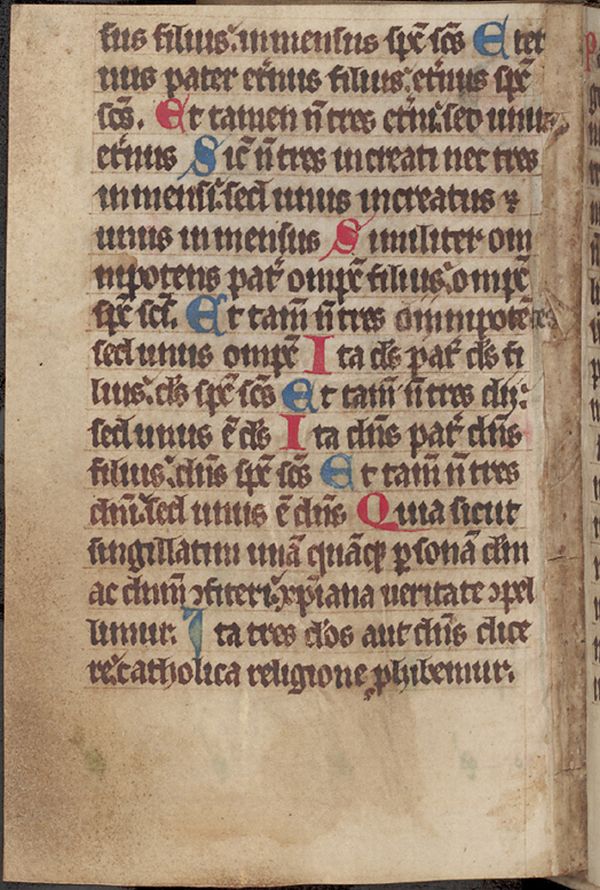 sus filius. inmensus spc̄ sc̄s Eter
nus pater et̄nus filius. et̄nus spc̄
sc̄s. Et tamen n̄ tres et̄ni. sed unus
et̄nus Sic̄ n̄ tres increati nec tres
inmensi. sed unus increatus ⁊
unus inmensus Similiter om
nipotens pat̄ omp̄c filius. omp̄c
spc̄ sc̄t. Et tam̄ n̄ tres omnipotētes
sed unus omp̄c Ita ds̄ pat̄ ds̄ fi
lius. ds̄ spc̄ sc̄s Et tam̄ n̄ tres dij.
sed unus ē ds̄ Ita dn̄s pat̄ dn̄s
filius. dn̄s spc̄ sc̄s Et tam̄ n̄ tres
dn̄i. sed unus ē dn̄s Quia sicut
singillatim unā quāq ꝑsonā dm̄
ac dnm̄ ꝯfiteri. xp̄iana veritate ꝯpel
limur. Ita tres d'os aut dn̄s dice
re. catholica religione ꝓhibemur.